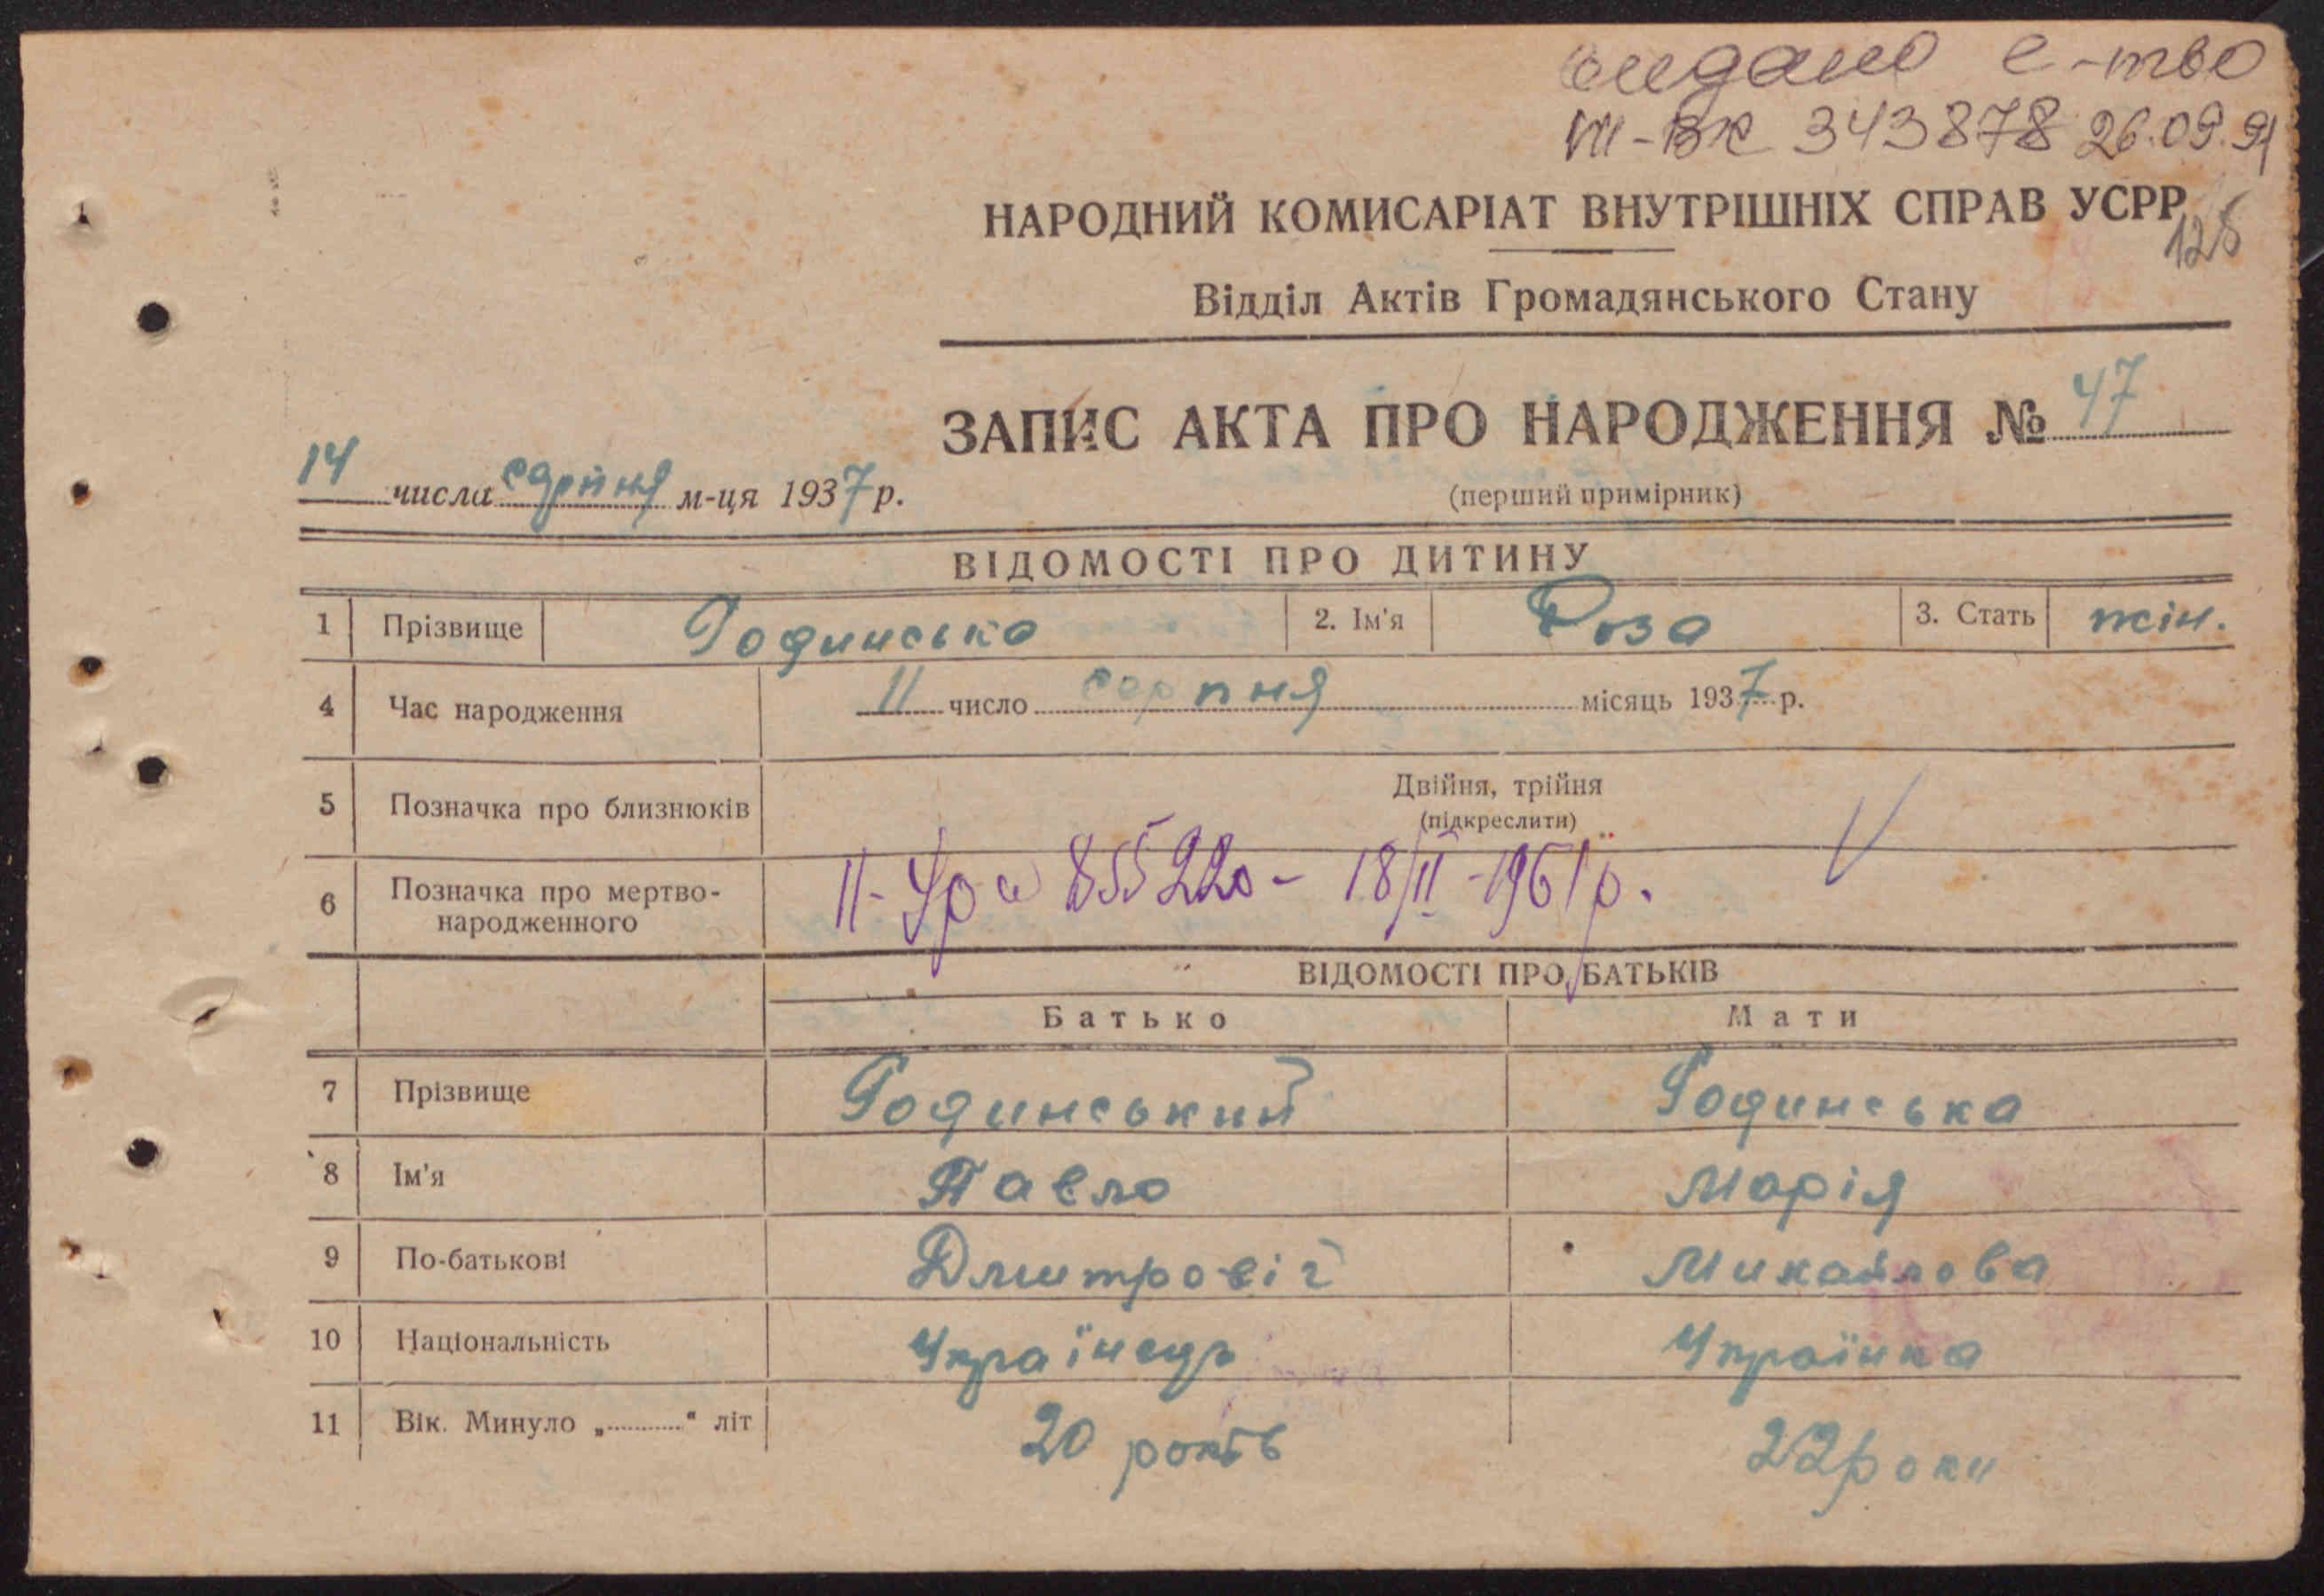 видано с-тво
III-ВК 343878 26.09.91
НАРОДНИЙ КОМИСАРІАТ ВНУТРІШНІХ СПРАВ УСРР
Відділ Актів Громадянського Стану
ЗАПИС АКТА ПРО НАРОДЖЕННЯ № 47
14 числа серпня м-ця 1937 р.
(перший примірник)
ВІДОМОСТІ ПРО ДИТИНУ
1 Прізвище Годинська 2. Ім'я Роза 3. Стать жін.
4 Час народження 11 число серпня місяць 1937 р.
5 Позначка про близнюків Двійня, трійня
(підкреслити)
6 Позначка про мертво-
народженного
II-Ур 855220 - 18/II-1961 р.
ВІДОМОСТІ ПРО БАТЬКІВ
Батько Мати
7 Прізвище Годинський Годинська
8 Ім'я Павло Марія
9 По-батькові Дмитровіч Микайлова
10 Національність Українець Українка
11 Вік. Минуло „..........“ літ 20 років 22 роки